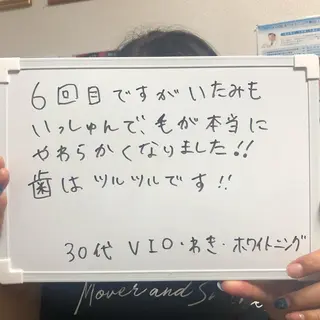 6回目ですがいたみも
いっしゅんで、毛が本当に
やわらかくなりました!!
歯はツルツルです!!
30代 VIO・わき・ホワイトニング
Mover and S